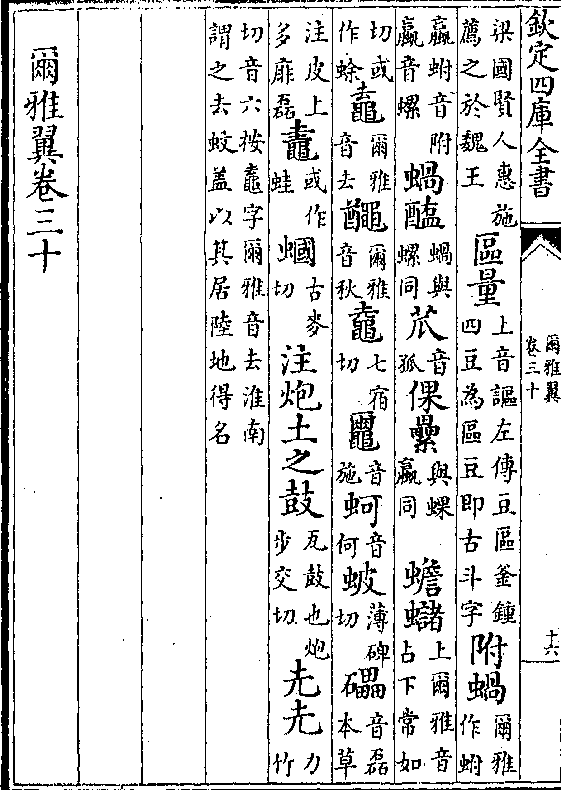 欽定四庫全書
爾雅翼
卷三十
十六
梁國賢人惠施
薦之於魏王
區量
上音謳左傳豆區釜鍾
四豆為區豆即古斗字
附蝸
爾雅
作蚹
蠃蚹音附
蠃音螺
蝸醢
蝸與
螺同
苽
音
孤
倮纍
與螺
蠃同
蟾蠩
上爾雅音
占下常如
切或
作蜍
鼁
爾雅
音去
𪓰
爾雅
音秋
鼀
七宿
切
音
施
蚵
音
何
蚾
薄碑
切
音磊
本草
注皮上
多痱磊
鼃
或作
蛙
蟈
古麥
切
注炮土之鼓
瓦鼓也炮
步交切
圥圥
力
竹
切音六按鼁字爾雅音去淮南
謂之去蚊蓋以其居陸地得名
爾雅翼卷三十